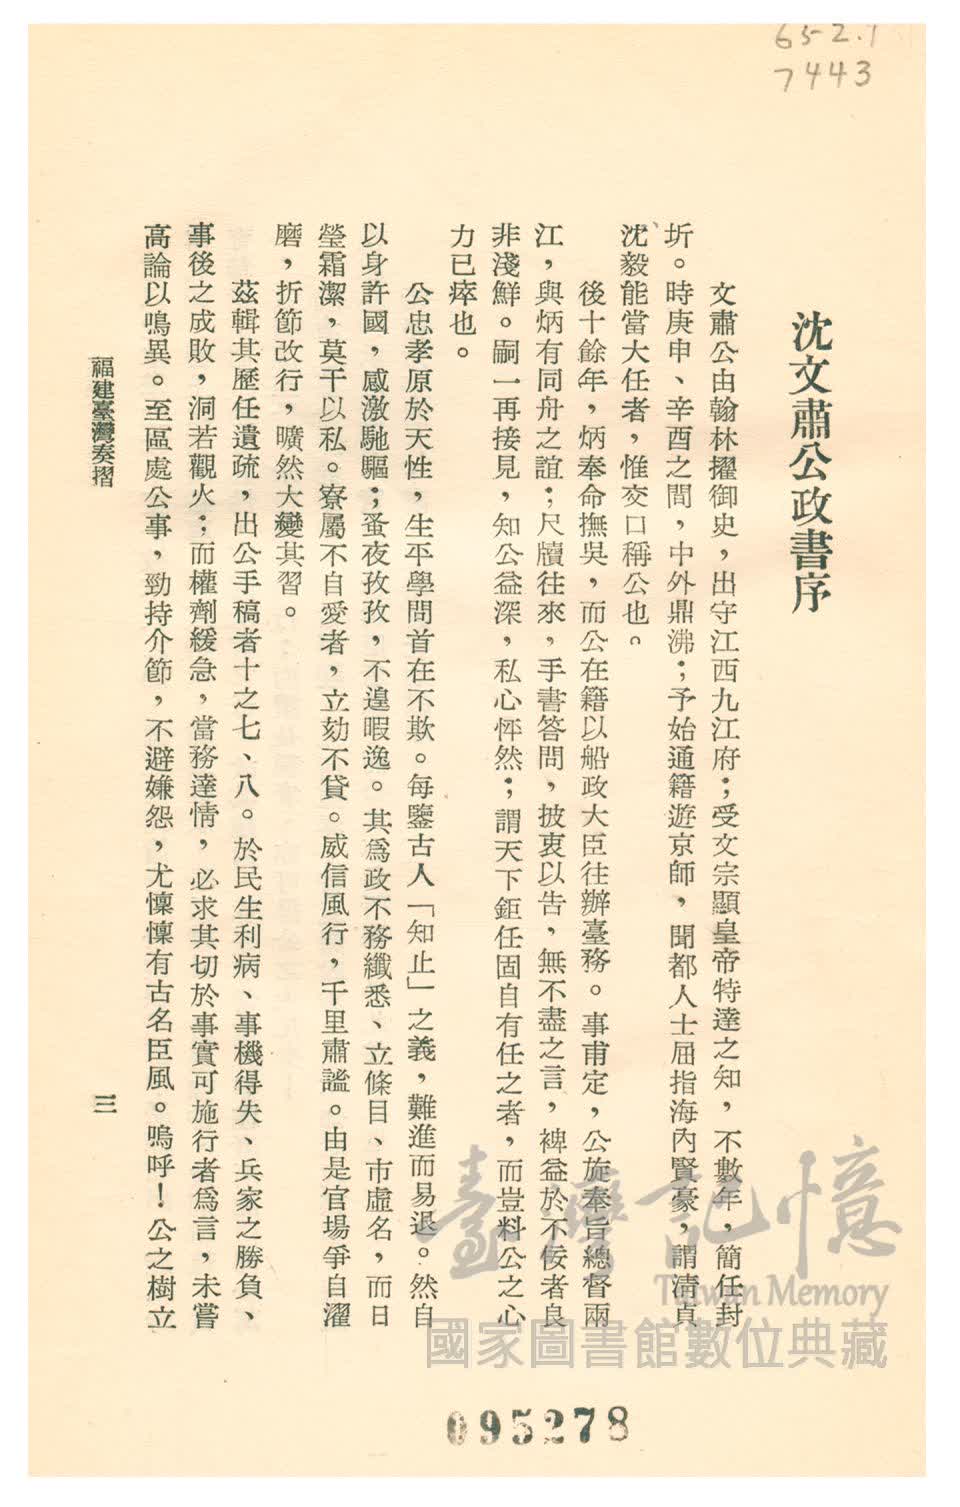 65-2.1
7443
沈文肅公政書序
文肅公由翰林擢御史，出守江西九江府；受文宗顯皇帝特達之知，不數年，簡任封
圻。時庚申、辛酉之間，中外鼎沸；予始通籍遊京師，聞都人士屈指海內賢豪，謂清貞
沈毅能當大任者，惟交口稱公也。
後十餘年，炳奉命撫吳，而公在籍以船政大臣往辦臺務。事甫定，公旋奉旨總督兩
江，與炳有同舟之誼；尺牘往來，手書答問，披衷以告，無不盡之言，裨益於不佞者良
非淺鮮。嗣一再接見，知公益深，私心怦然；謂天下鉅任固自有任之者，而豈料公之心
力已瘁也。
公忠孝原於天性，生平學問首在不欺。每鑒古人「知止」之義，難進而易退。然自
以身許國，感激馳驅；蚤夜孜孜，不遑暇逸。其爲政不務纖悉、立條目、市虛名，而日
瑩霜潔，莫干以私。寮屬不自愛者，立劾不貸。威信風行，千里肅謐。由是官場爭自濯
磨，折節改行，曠然大變其習。
茲輯其歷任遺疏，出公手稿者十之七、八。於民生利病、事機得失、兵家之勝負、
事後之成敗，洞若觀火；而權劑緩急，當務達情，必求其切於事實可施行者爲言，未嘗
高論以鳴異。至區處公事，勁持介節，不避嫌怨，尤懍懍有古名臣風。嗚呼！公之樹立
福建臺灣奏摺
三
臺灣記憶
Taiwan Memory
國家圖書館數位典藏
095278